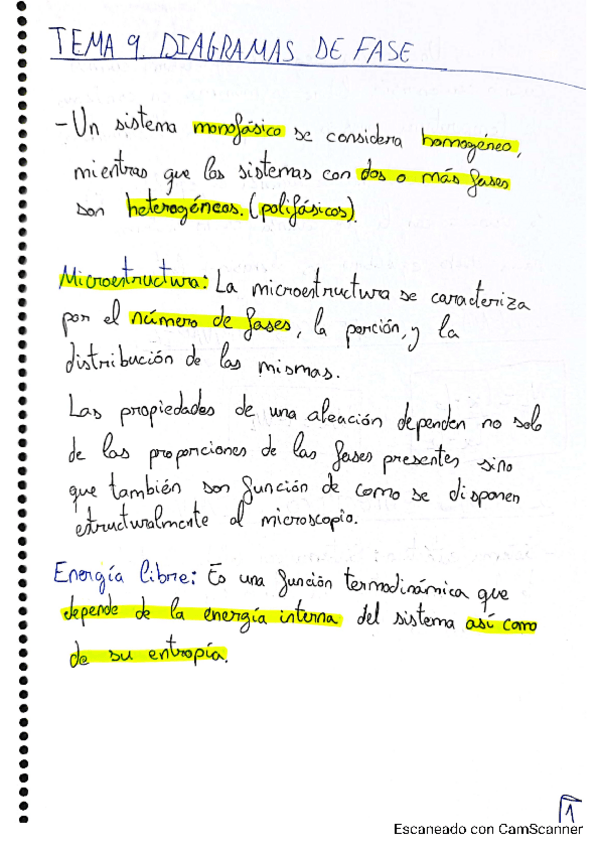 TEMA 9. DIAGRAMAS DE FASE
- Un sistema monofásico se considera homogéneo,
mientras que los sistemas con dos o más fases
son heterogéneos. (polifásicos).
Microestructura: La microestructura se caracteriza
por el número de fases, la porción, y la
distribución de las mismas.
Las propiedades de una aleación dependen no solo
de las proporciones de las fases presentes sino
que también son función de como se disponen
estructuralmente al microscopio.
Energía libre: Es una función termodinámica que
depende de la energía interna del sistema así como
de su entropía.
1
Escaneado con CamScanner